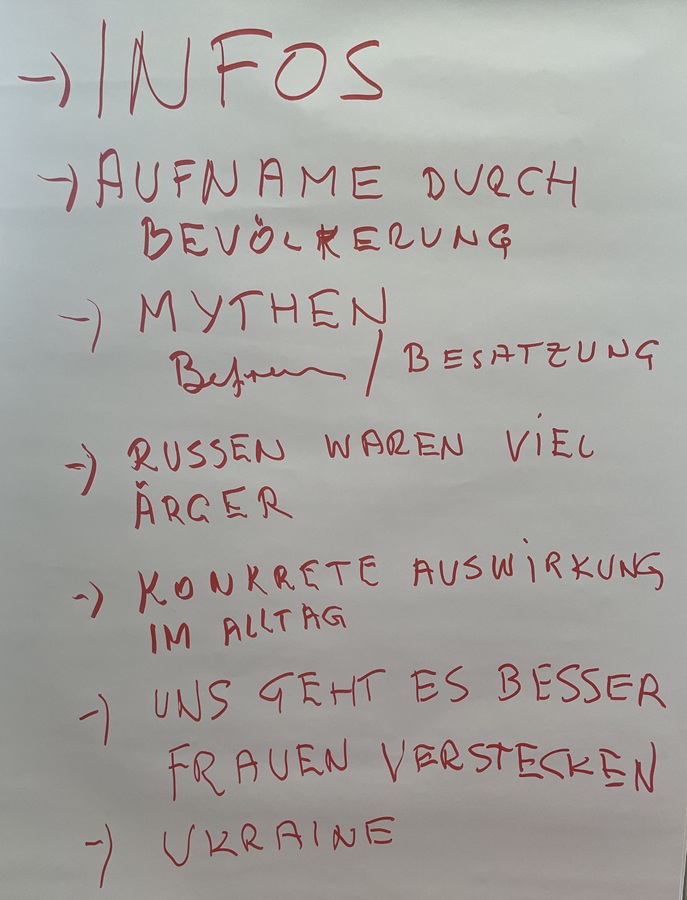 → INFOS
→ AUFNAME DURCH
BEVÖLKERUNG
→ MYTHEN
/ BESATZUNG
→ RUSSEN WAREN VIEL
ÄRGER
→ KONKRETE AUSWIRKUNG
IM ALLTAG
→ UNS GEHT ES BESSER
FRAUEN VERSTECKEN
→ UKRAINE